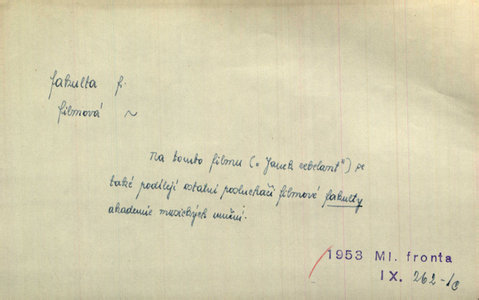 fakulta f.
filmová ~
Na tomto filmu (= "Janek rebelant") se
také podílejí ostatní posluchači filmové fakulty
akademie musických umění.
1953 Ml. fronta
IX. 262-/3